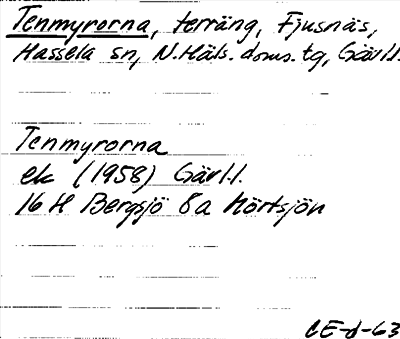 Tenmyrorna, terräng, Fjusnäs,
Hassela sn, N.Häls. doms. tg, Gävl.l.
Tenmyrorna
ek (1958) Gävl.l.
16 H Bergsjö 8a Hörtsjön
CE-d-63